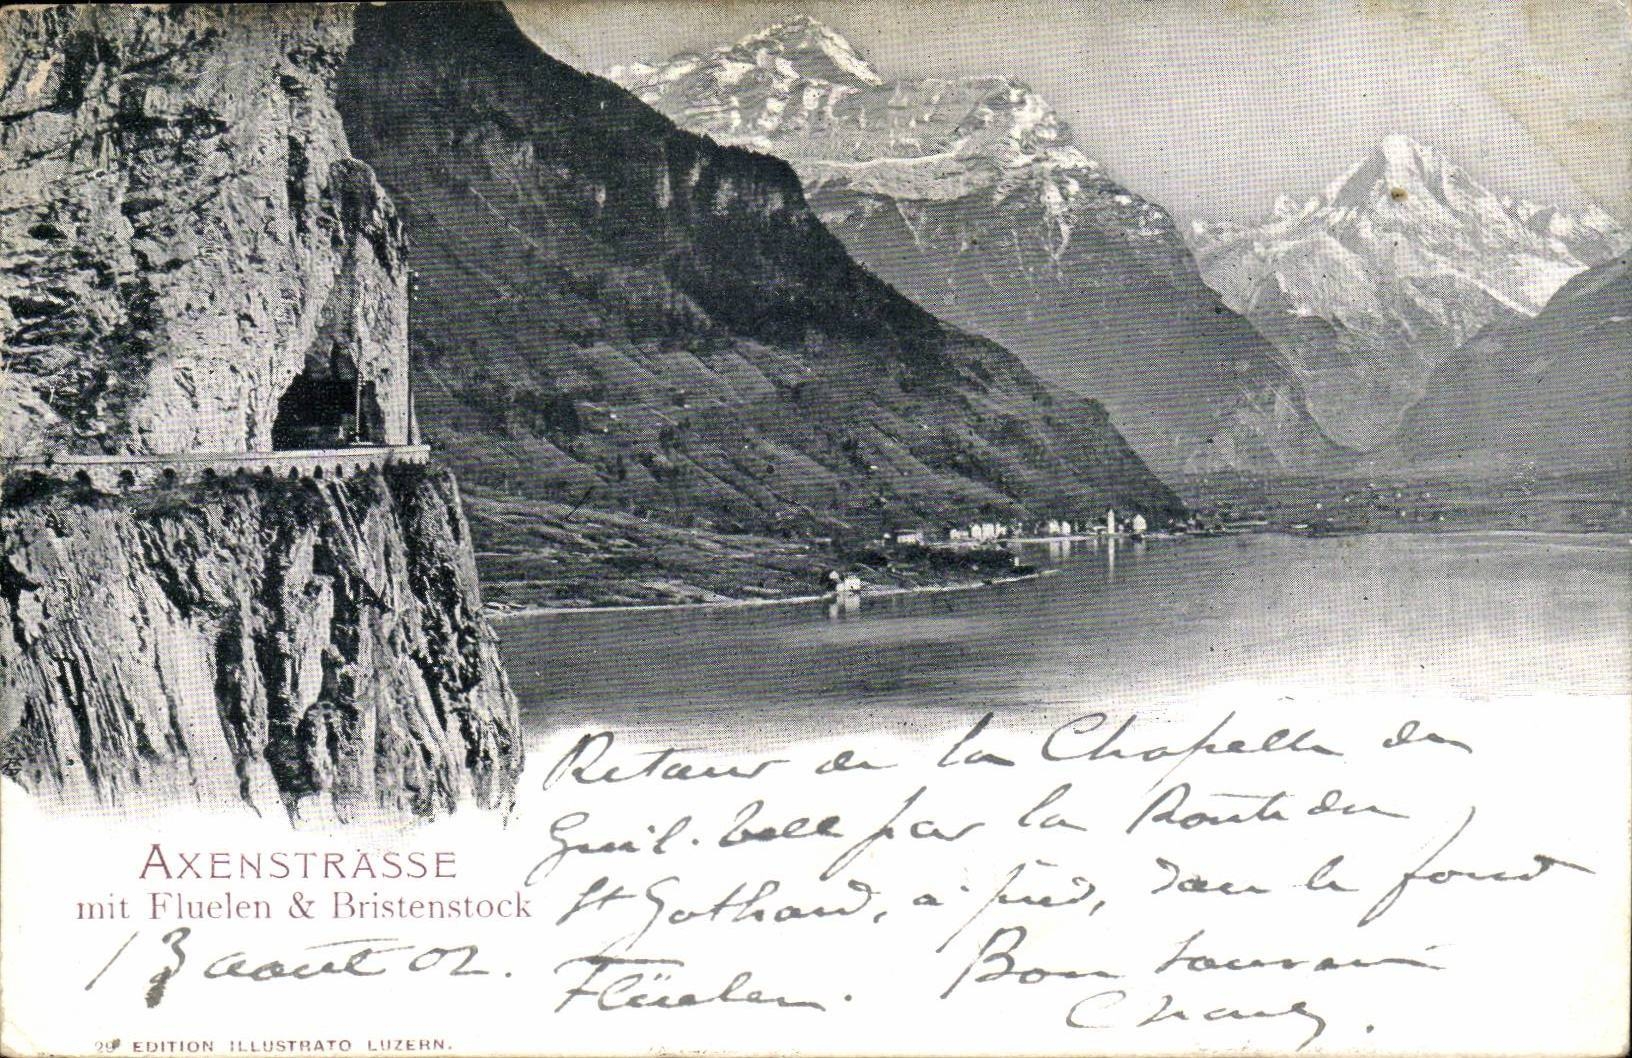 Retour de la Chapelle de
Guil. Tell par la Route du
St Gothard, à pied, dans le fond
Flüelen. Bon souvenir
AXENSTRASSE
mit Fluelen & Bristenstock
13 aout 02.
29 EDITION ILLUSTRATO LUZERN.